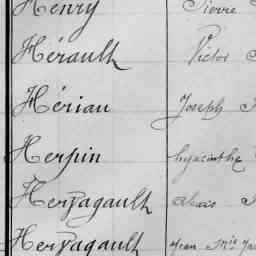 Henry Pierre
Hérault Victor
Hériau Joseph
Herpin hyacinthe
Herpagault alexis
Herpagault Jean Mie